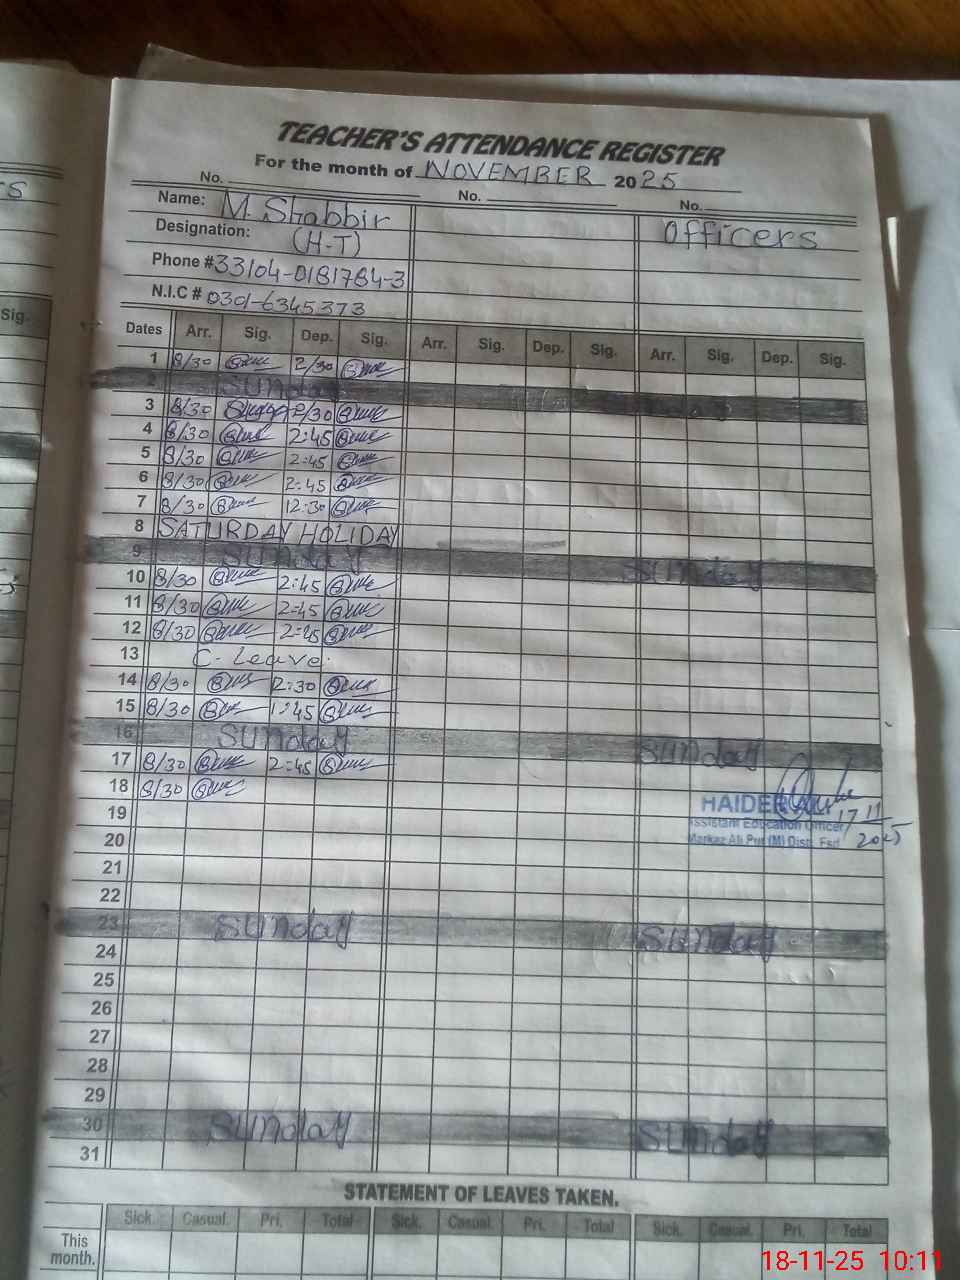 TEACHER'S ATTENDANCE REGISTER
For the month of NOVEMBER 2025
No. No. No.
Name: M. Shabbir Officers
Designation: (H-T)
Phone # 33104-0181784-3
N.I.C # 0301-6345373
Sig.
Dates Arr. Sig. Dep. Sig. Arr. Sig. Dep. Sig. Arr. Sig. Dep. Sig.
1 8/30 2/30
2 Sunday
3 8/30 2/30
4 8/30 2:45
5 8/30 2:45
6 8/30 2:45
7 8/30 12:30
8 SATURDAY HOLIDAY
9 Sunday Sunday
10 8/30 2:45
11 8/30 2:45
12 8/30 2:45
13 C. Leave.
14 8/30 12:30
15 8/30 1:45
16 Sunday Sunday
17 8/30 2:45
18 8/30
HAIDER 17/11
19 Assistant Education Officer 2025
20 Markaz Ali Pur (M) Dist. Fsd
21
22
23 Sunday Sunday
24
25
26
27
28
29
30 Sunday Sunday
31
STATEMENT OF LEAVES TAKEN.
Sick. Casual. Pri. Total Sick. Casual. Pri. Total Sick. Casual. Pri. Total
This
month.
18-11-25 10:11